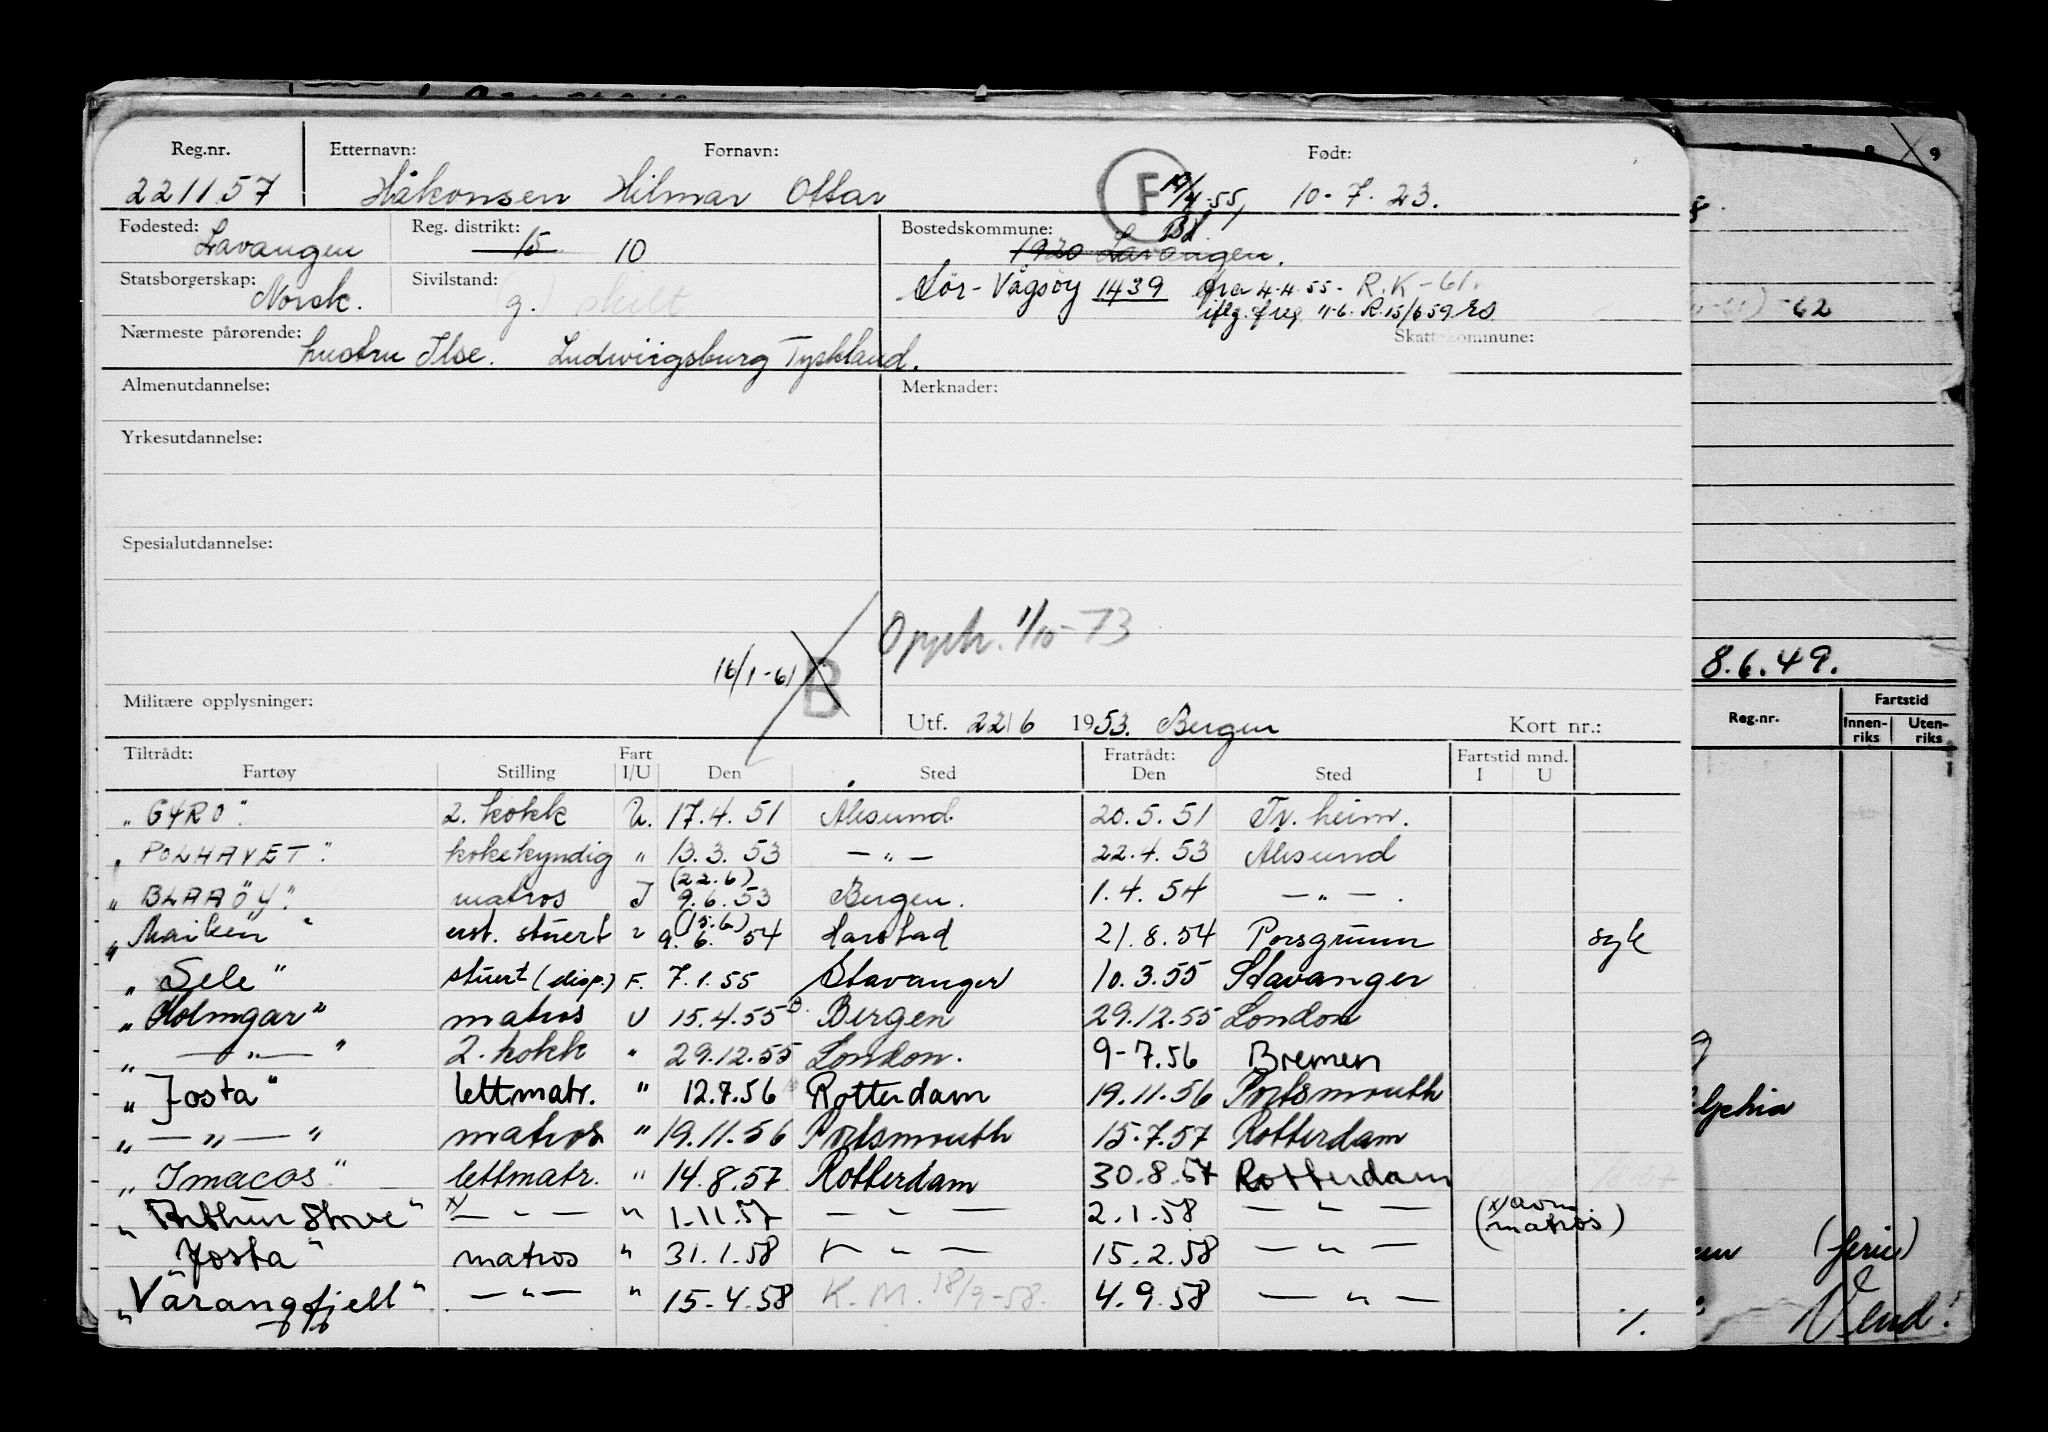 Reg.nr. Etternavn: Fornavn: Født:
221157 Håkonsen Hilmar Ottar F 19/4-55, 10-7.23.
Fødested: Lavangen Reg. distrikt: 15 10 Bostedskommune: 1920 Lavangen.
Statsborgerskap: Norsk. Sivilstand: (g.) skilt Sör-Vågsöy 1439 fra 4.4.55- R.K-61.
iflg. freg 11-6. R.15/659
Nærmeste pårørende: hustru Ilse. Ludwiigsburg Tyskland. Skattekommune:
Almenutdannelse: Merknader:
Yrkesutdannelse:
Spesialutdannelse:
Oppstr. 1/10-73
16/1-61 B
Militære opplysninger: Utf. 22/6 1953. Bergen Kort nr.:
Tiltrådt: Fart Fratrådt: Fartstid mnd.
Fartøy Stilling I/U Den Sted Den Sted I U
"GYRO". 2. kokk U. 17.4.51 Ålesund 20.5.51 Tr.heim.
"POLHAVET". kokekyndig " 13.3.53 — " — 22.4.53 Ålesund
"BLAAÖY". matros I (22.6) 9.6.53 Bergen. 1.4.54 — " — .
"Maiken" erst. stuert " (15.6) 9.6.54 Harstad 21.8.54 Porsgrunn syk
"Sele" stuert (disp.) F. 7.1.55 Stavanger 10.3.55 Stavanger
"Holmgar" matros U 15.4.55 Bergen 29.12.55 London
" — " — " 2. kokk " 29.12.55 London. 9-7.56 Bremen
"Josta" lettmatr. " 12.7.56 Rotterdam 19.11.56 Portsmouth
" — " — " matros " 19.11.56 Portsmouth 15.7.57 Rotterdam
"Imacos" lettmatr. " 14.8.57 Rotterdam 30.8.57 Rotterdam
"Arthur Stove" x) — " — " 1.11.57 — " — 2.1.58 — " — (x) avm. matros)
"Josta" matros " 31.1.58 — " — 15.2.58 — " —
"Varangfjell" — " — " 15.4.58 K.M. 18/9-58. 4.9.58 — " —
./.
-62
8.6.49.
Reg.nr. Fartstid
Innen-riks Uten-riks
(ferie)
Vend!